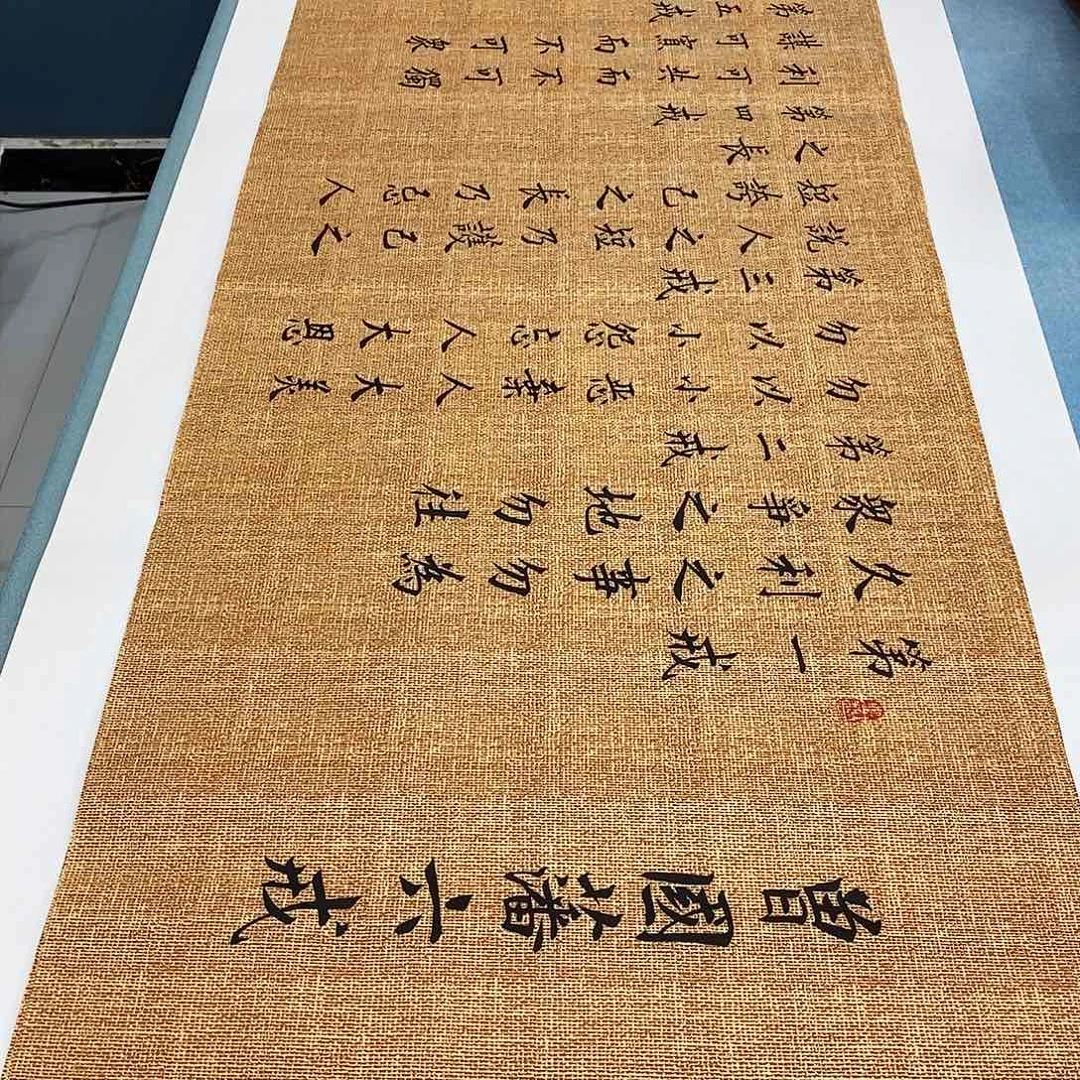 曾國藩六戒
第一戒
久利之事勿為
衆爭之地勿往
第二戒
勿以小惡棄人大美
勿以小怨忘人大恩
第三戒
說人之短乃護己之
短夸己之長乃忌人
之長
第四戒
利可共而不可獨
謀可寡而不可衆
第五戒